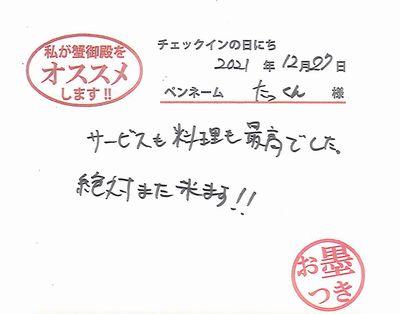 私が蟹御殿を
オススメ
します!!
チェックインの日にち
2021 年 12月07日
ペンネーム たっくん 様
サービスも料理も最高でした。
絶対また来ます!!
お墨
つき